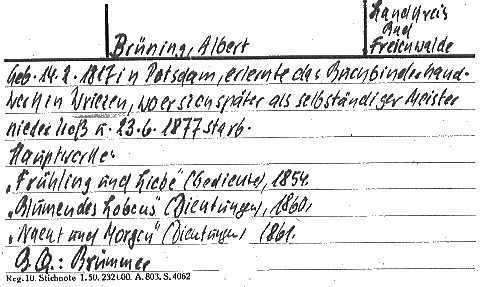 Landkreis
Bad
Freienwalde
Brüning, Albert
Geb. 14.2.1817 in Potsdam, erlernte das Buchbinderhand-
werk in Wriezen, wo er sich später als selbständiger Meister
niederließ u. 23.6.1877 starb.
Hauptwerke:
„Frühling und Liebe" (Gedichte), 1854.
„Blumen des Lebens" (Dichtungen), 1860.
„Nacht und Morgen" (Dichtungen) 1861.
B.Q.: Brümmer
Reg. 10. Stichnote 1. 50. 2321.00. A. 803. S. 4062